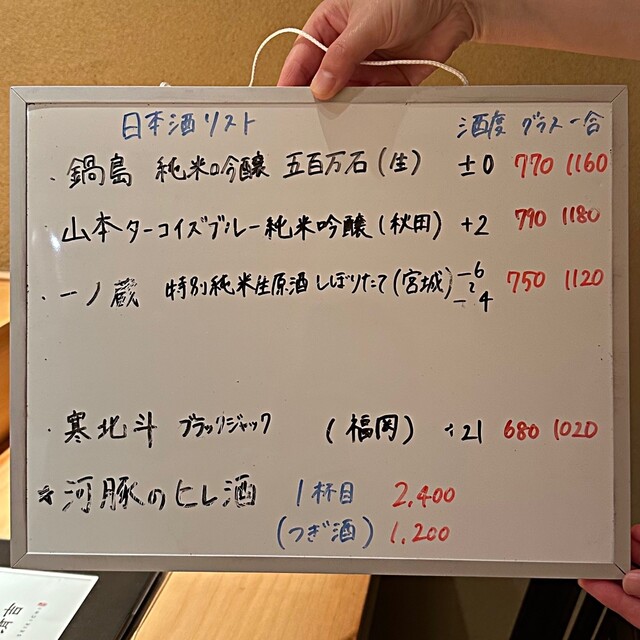 日本酒リスト 酒度 グラス 一合
・鍋島 純米吟醸 五百万石(生) ±0 770 1160
山本ターコイズブルー純米吟醸(秋田) +2 790 1180
・一ノ蔵 特別純米生原酒しぼりたて(宮城) -6~-4 750 1120
・寒北斗 ブラックジャック (福岡) +21 680 1020
☆河豚のヒレ酒 1杯目 2,400
(つぎ酒) 1,200